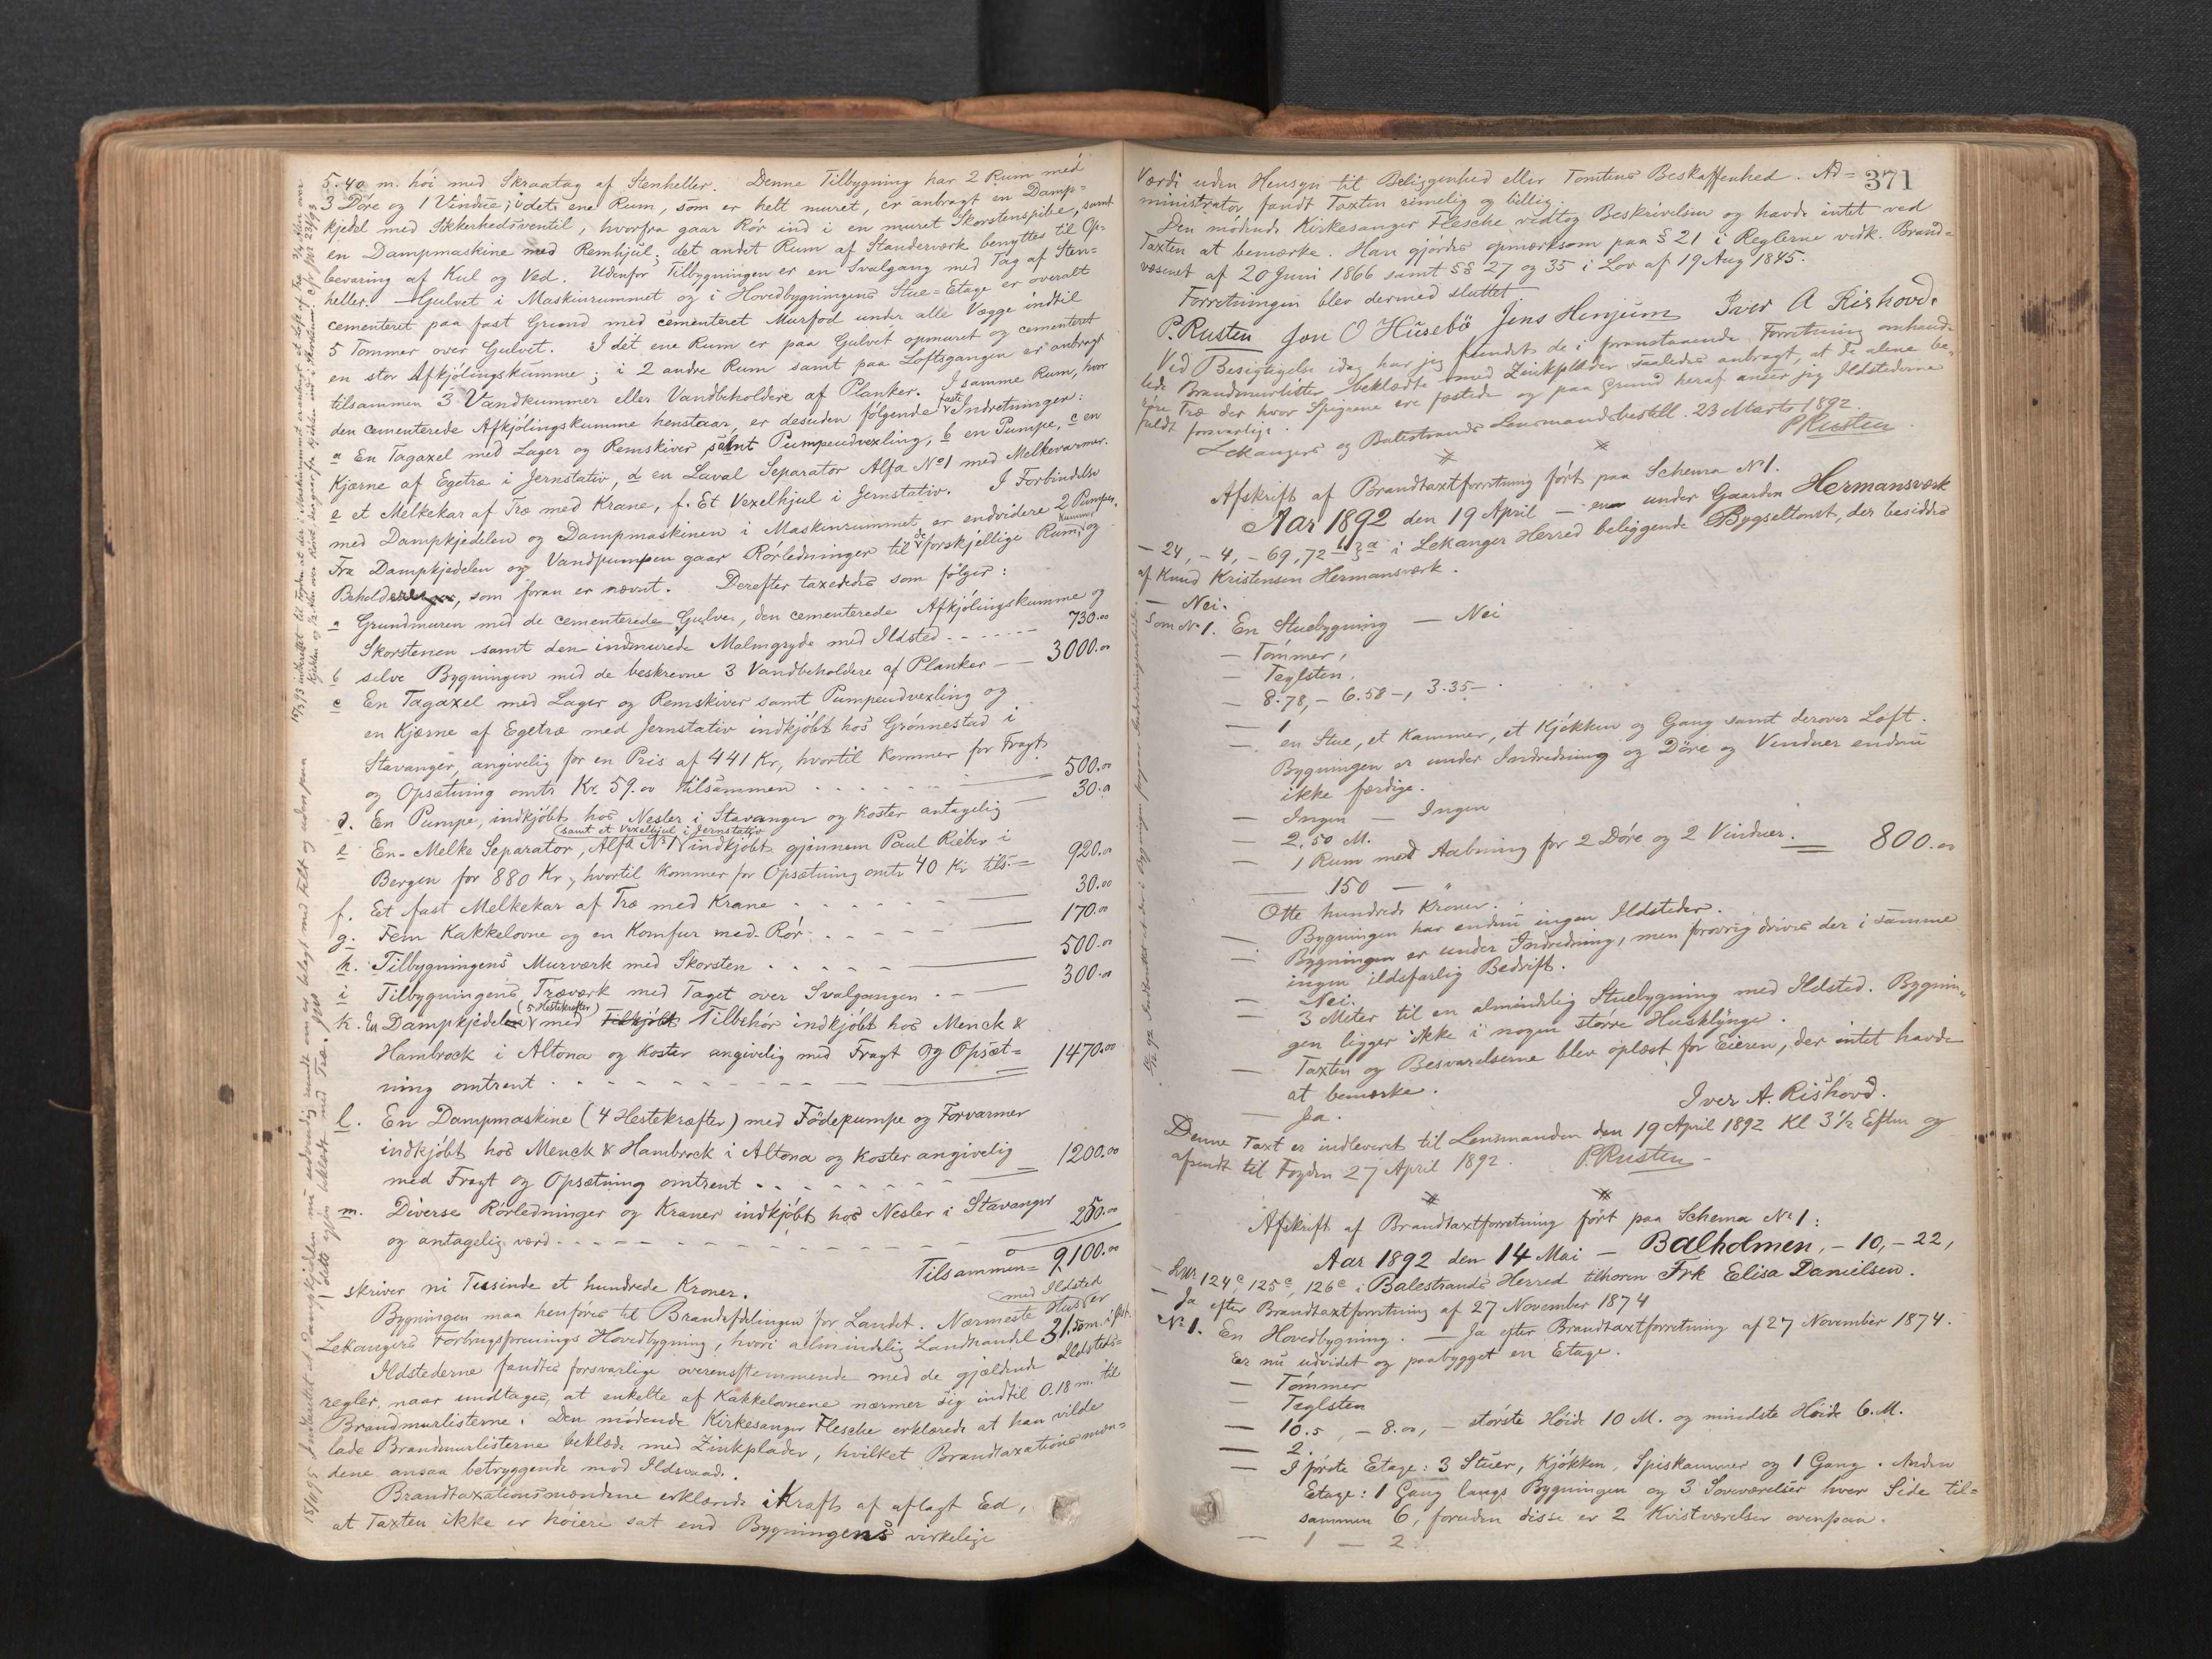 5.40 m. høi med Skraatag af Stenheller. Denne Tilbygning har 2 Rum med
3 Døre og 1 Vindue; i det ene Rum, som er helt muret, er anbragt en Damp=
kjedel med Sikkerhedsventil, hvorfra gaar Rør ind i en muret Skorstenspibe, samt
en Dampmaskine med Remhjul; det andet Rum af Standerværk benyttes til Op=
bevaring af Kul og Ved. Udenfor Tilbygningen er en Svalgang med Tag af Sten=
heller. — Gulvet i Maskinrummet og i Hovedbygningens Stue=Etage er overalt
cementeret paa fast Grund med cementeret Murfod under alle Vægge indtil
5 Tommer over Gulvet. I det ene Rum er paa Gulvet opmuret og cementeret
en stor Afkjølingskumme; i 2 andre Rum samt paa Loftsgangen er anbragt
tilsammen 3 Vandkummer eller Vandbeholdere af Planker. I samme Rum, hvor
den cementerede Afkjølingskumme henstaar, er desuden følgende faste Indretninger:
a En Tagaxel med Lager og Remskiver samt Pumpeudvexling, b en Pumpe, c en
Kjærne af Egetræ i Jernstativ, d en Laval Separator Alfa No 1 med Melkevarmer.
e et Melkekar af Træ med Krane, f. Et Vexelhjul i Jernstativ. I Forbindelse
med Dampkjedelen og Dampmaskinen i Maskinrummet er endvidere 2 Pumper.
Fra Dampkjedelen og Vandpumpen gaar Rørledninger til de forskjellige Rum, Kummer og
Beholdere, som foran er nævnt. Derefter taxeredes som følger:
a Grundmuren med de cementerede Gulve, den cementerede Afkjølingskumme og
Skorstenen samt den indmurede Malmgryde med Ildsted - - - - 730.00
b selve Bygningen med de beskrevne 3 Vandbeholdere af Planker — 3000.00
c En Tagaxel med Lager og Remskiver samt Pumpeudvexling og
en Kjærne af Egetræ med Jernstativ indkjøbt hos Grønnestad i
Stavanger, angivelig for en Pris af 441 Kr, hvortil kommer for Fragt
og Opsætning omtr Kr. 59.00 tilsammen . . . . 500.00
d. En Pumpe, indkjøbt hos Nesler i Stavanger og koster antagelig — 30.00
e En Melke Separator, Alfa No 1 (samt et Vexelhjul i Jernstativ) indkjøbt gjennem Paul Rieber i
Bergen for 880 Kr, hvortil kommer for Opsætning omtr 40 Kr tils = 920.00
f. Et fast Melkekar af Træ med Krane . . . . 30.00
g. Fem Kakkelovne og en Komfur med Rør . . . 170.00
h. Tilbygningens Murværk med Skorsten . . . . 500.00
i Tilbygningens Træværk med Taget over Svalgangen . — 300.00
k. En Dampkjedel (5 Hestekræfter) med Tilbehør indkjøbt hos Menck &
Hambrock i Altona og koster angivelig med Fragt og Opsæt=
ning omtrent . . . . 1470.00
l. En Dampmaskine (4 Hestekræfter) med Fødepumpe og Forvarmer
indkjøbt hos Menck & Hambrock i Altona og koster angivelig
med Fragt og Opsætning omtrent . . . . 1200.00
m. Diverse Rørledninger og Kraner indkjøbt hos Nesler i Stavanger
og antagelig værd - - - - 250.00
Tilsammen = 9100.00
skriver ni Tusinde et hundrede Kroner.
Bygningen maa henføres til Brandafdelingen for Landet. Nærmeste Hus med Ildsted er
Lekangers Forbrugsforenings Hovedbygning, hvori almindelig Landhandel 31.50 m. i Øst.
Ildstederne fandtes forsvarlige overensstemmende med de gjældende Ildsteds=
regler, naar undtages, at enkelte af Kakkelovnene nærmer sig indtil 0.18 m. til
Brandmurlisterne. Den mødende Kirkesanger Flesche erklærede at han vilde
lade Brandmurlisterne beklæde med Zinkplader, hvilket Brandtaxationsmæn=
dene ansaa betryggende mod Ildsvaade.
Brandtaxationsmændene erklærede i Kraft af aflagt Ed,
at Taxten ikke er høiere sat end Bygningens virkelige
371
Værdi uden Hensyn til Beliggenhed eller Tomtens Beskaffenhed. Ad=
ministrator fandt Taxten rimelig og billig.
Den mødende Kirkesanger Flesche vedtog Beskrivelsen og havde intet ved
Taxten at bemærke. Han gjørdes opmærksom paa § 21 i Reglerne vedk. Brand=
væsenet af 20 Juni 1866 samt §§ 27 og 35 i Lov af 19 Aug 1845.
Forretningen blev dermed sluttet
P. Rusten Jon O Husebø Jens Henjum Iver A Rishovd.
Ved Besigtigelse idag har jeg fundet de i foranstaaende Forretning omhand=
lede Brandmurlister beklædte med Zinkplader saaledes anbragt, at de alene be=
røre Træ der hvor Spigrene ere fæstede og paa Grund heraf anser jeg Ildstederne
fuldt forsvarlige.
Lekangers og Balestrands Lensmandsbestill. 23 Marts 1892.
P Rusten
Afskrift af Brandtaxtforretning ført paa Schema No 1.
Aar 1892 den 19 April — under Gaarden Hermansværk
— 24, — 4, — 69, 72 i Lekanger Herred beliggende Bygseltomt, der besiddes
af Knud Kristensen Hermansværk.
— Nei.
Som No 1. En Stuebygning — Nei
— Tømmer,
— Teglsten,
— 8.78, — 6.58 —, 3.35 —
— 1
— en Stue, et Kammer, et Kjøkken og Gang samt derover Loft.
Bygningen er under Indredning og Døre og Vinduer endnu
ikke færdige.
— Ingen — Ingen
— 2.50 M.
— 1 Rum med Aabning for 2 Døre og 2 Vinduer. — 800.00
— 150 — "
Otte hundrede Kroner.
— Bygningen har endnu ingen Ildsteder.
— Bygningen er under Indredning, men forøvrig drives der i samme
ingen ildsfarlig Bedrift.
— Nei.
— 3 Meter til en almindelig Stuebygning med Ildsted. Bygnin=
gen ligger ikke i nogen større Husklynge.
— Taxten og Besvarelserne blev oplæst for Eieren, der intet havde
at bemærke.
— Ja.
Iver A. Rishovd.
Denne Taxt er indleveret til Lensmanden den 19 April 1892 Kl 3 1/2 Eftm og
afsendt til Fogden 27 April 1892. P. Rusten
Afskrift af Brandtaxtforretning ført paa Schema No 1:
Aar 1892 den 14 Mai — Balholmen, — 10, — 22,
124c, 125c, 126c i Balestrands Herred tilhører Frk Elisa Danielsen.
— Ja efter Brandtaxtforretning af 27 November 1874
No 1. En Hovedbygning. — Ja efter Brandtaxtforretning af 27 November 1874.
Er nu udvidet og paabygget en Etage.
— Tømmer
— Teglsten
— 10.5, — 8.00, — største Høide 10 M. og mindste Høide 6. M.
— 2.
— I første Etage: 3 Stuer, Kjøkken, Spiskammer og 1 Gang. Anden
Etage: 1 Gang langs Bygningen og 3 Soveværelser hver Side til=
sammen 6, foruden disse er 2 Kvistværelser ovenpaa.
— 1 — 2